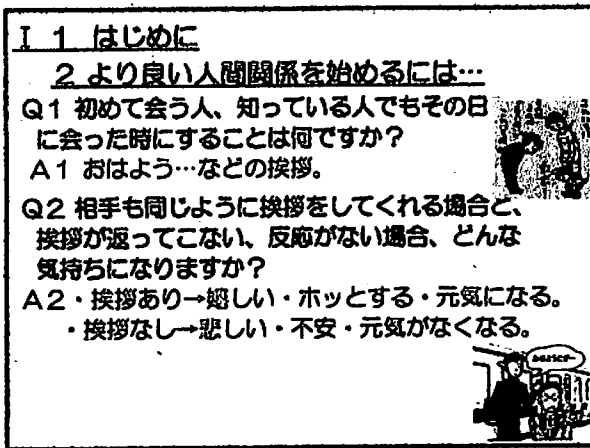 Ⅰ 1 はじめに
2 より良い人間関係を始めるには…
Q1 初めて会う人、知っている人でもその日
に会った時にすることは何ですか?
A1 おはよう…などの挨拶。
Q2 相手も同じように挨拶をしてくれる場合と、
挨拶が返ってこない、反応がない場合、どんな
気持ちになりますか?
A2・挨拶あり→嬉しい・ホッとする・元気になる。
・挨拶なし→悲しい・不安・元気がなくなる。